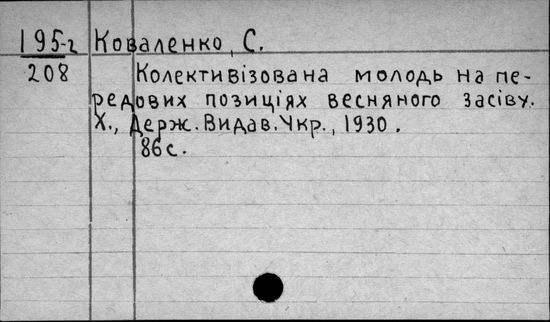 195-г Коваленко, С.
208 Колективізована молодь на пе-
редових позиціях весняного засіву.
Х., Держ. Видав. Укр., 1930.
86 с.